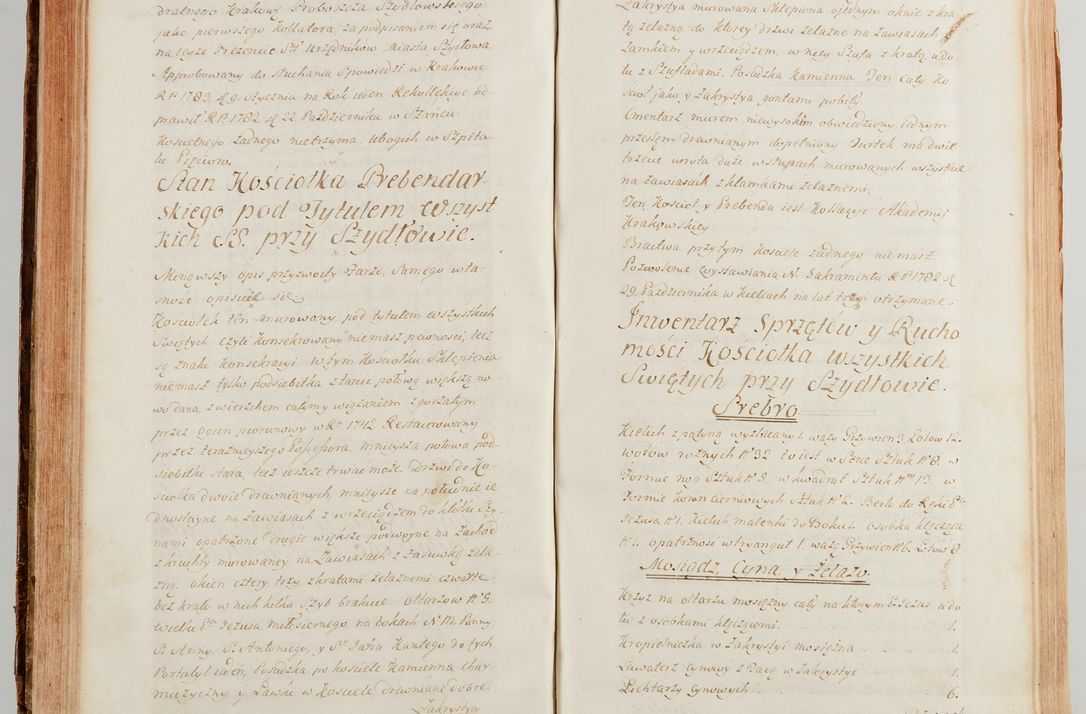 dralnego Krakow: Proboszcza Szydłowskiego
jako pierwszego Kollatora, za podpisaniem się oraz
na teyże Prezencie PP Urzędników Miasta Szydłowa.
Approbowany do słuchania Spowiedzi w Krakowie
R P 1783 d 9. Stycznia na Rok ieden Rekollekcye od-
prawił R P. 1782 d 22 Października w
Kościelnego żadnego nietrzyma. Ubogich w Szpita-
lu Pięcioro.
Stan Kościołka Prebendar-
skiego pod Tytułem Wszyst
kich SS. przy Szydłowie.
Minąwszy opis przyzwoity Farze, Samego wła-
sność opisuie się
Kościołek ten murowany pod tytułem Wszystkich
Świętych czyli Konsekrowany niemasz pewności, lecz
są znaki Konsekracyi. W tym Kościołku Sklepienia
niemasz tylko podsiebitka z tarcic połową większą no-
wo dana, z wierzchem całymy wiązaniem zgorzałym
przez Ogień piorunowy w Rº 1742 Restaurowany
przez teraznieyszego Possessora, mnieysza połowa pod-
siebitki stara, lecz ieszcze trwać może. Drzwi do Ko-
ściołka dwoie drewnianych, mnieysze na południe ie-
dnostayne na Zawiasach z wrzeciądzem do kłótki Szy-
nami opatrzone drugie większe podwoyne na Zachód
z kruchty murowaney na Zawiasach z Zasuwką żela-
zną. Okien cztery trzy z kratami żelaznemi czwarte
bez kraty w nich kilku Szyb brakuie. Ołtarzow Nº 5.
Wielki Pª Jezusa miłosiernego, na bokach N. M. Panny
S. Anny, S. Antoniego, y Sº Jana Kantego do tych
Portatyl ieden, Posadzka po kościele Kamienna Chor
muzyczny, y Ławki w Kościele drewniane dobre.
Zakrystya
Zakrystya murowana Sklepiona o jednym oknie z kra
tą żelazną, do ktorey drzwi żelazne na zawiasach
Zamkiem y wrzeciądzem, w niey Szafa z kratą, u do
łu z Szufladami. Posadzka kamienna Ten Cały Ko
ścioł jako y Zakrystya gontami pobity
Cmentarz murem niewysokim obwiedziony, iednym
przęsłem drewnianym dopełniony Furtek ma dwie
trzecie wrota duże w słupach murowanych wszystkie
na Zawiasach, z klamkami żelaznemi.
Ten Kościoł y Prebenda iest Kollacyi Akademij
Krakowskiey.
Bractwa przy tym Kościele żadnego niemasz
Pozwolenie Wystawiania N. Sakramentu R P 1782 d
29. Października w Kielcach na lat trzy otrzymane.
Inwentarz Sprzętów y Rucho
mości Kościołka Wszystkich
Świętych przy Szydłowie.
Srebro
Kielich z patyną wyzłacany 1. waży Grzywien 3 Łotow 12.
Wotow rożnych Nº 32 to iest w Serce Sztuk Nº 8. w
Formie nog Sztuk Nº 9. w kwadrat Sztuk Nº 13. w
Formie koron Cierniowych Sztuk Nº 2. Berło do Ręki Pª
Jezusa Nº 1. Kielich malenki do 1. osobka klęcząca
Nº 1. opatrzność w tryanguł 1. ważą Grzywien Nº 6. Łotow 8
Mosiądz Cyna y Żelazo.
Krzyż na ołtarzu mosiężny cały na ktorym P. Jezus, u do
łu z osobkami klęczącemi. 1.
Kropielniczka w Zakrystyi mosiężna 1.
Lawaterz Cynowy z Tacą w Zakrystyi 1.
Lichtarzy Cynowych 6.